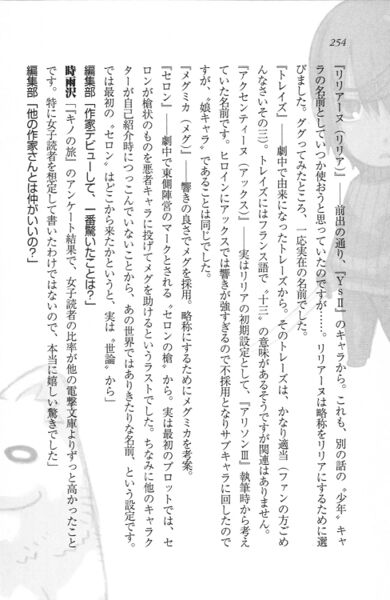 254
『リリアーヌ（リリア）』――前出の通り、『YsⅡ』のキャラから。これも、別の話の〝少年〟キャ
ラの名前としていつか使おうと思っていたのですが……。リリアーヌは略称をリリアにするために選
びました。ググってみたところ、一応実在の名前でした。
『トレイズ』――劇中で由来になったトレイズから。そのトレイズは、かなり適当（ファンの方ごめ
んなさいその三）。トレイズにはフランス語で〝十三〟の意味があるそうですが関連はありません。
『アクセンティーヌ（アックス）』――実はリリアの初期設定として、『アリソンⅢ』執筆時から考え
ていた名前です。ヒロインにアックスでは響きが強すぎるので不採用となりサブキャラに回したので
すが、〝娘キャラ〟であることは同じでした。
『メグミカ（メグ）』――響きの良さでメグを採用。略称にするためにメグミカを考案。
『セロン』――劇中で東側陣営のマークとされる〝セロンの槍〟から。実は最初のプロットでは、セ
ロンが槍状のものを悪者キャラに投げてメグを助けるというラストでした。ちなみに他のキャラク
ターが自己紹介時につっこんでいないことから、あの世界ではありきたりな名前、という設定です。
では最初の〝セロン〟はどこから来たかというと、実は〝世論〟から」
編集部「作家デビューして、一番驚いたことは？」
時雨沢「『キノの旅』のアンケート結果で、女子読者の比率が他の電撃文庫よりずっと高かったこと
です。特に女子読者を想定して書いたわけではないので、本当に嬉しい驚きでした」
編集部「他の作家さんとは仲がいいの？」